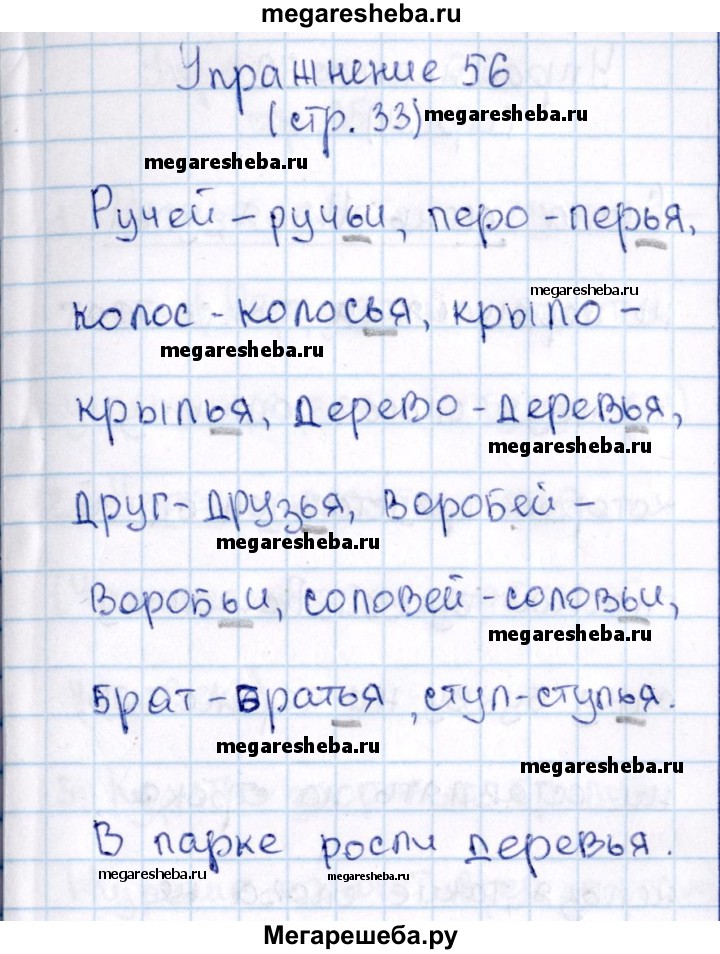 megaresheba.ru
Упражнение 56
(стр. 33)
megaresheba.ru
megaresheba.ru
Ручей - ручьи, перо - перья,
megaresheba.ru
колос - колосья, крыло -
megaresheba.ru
крылья, дерево - деревья,
megaresheba.ru
друг - друзья, воробей -
megaresheba.ru
воробьи, соловей - соловьи,
megaresheba.ru
брат - братья, стул - стулья.
megaresheba.ru
megaresheba.ru
В парке росли деревья.
megaresheba.ru
megaresheba.ru
Мегарешеба.ру